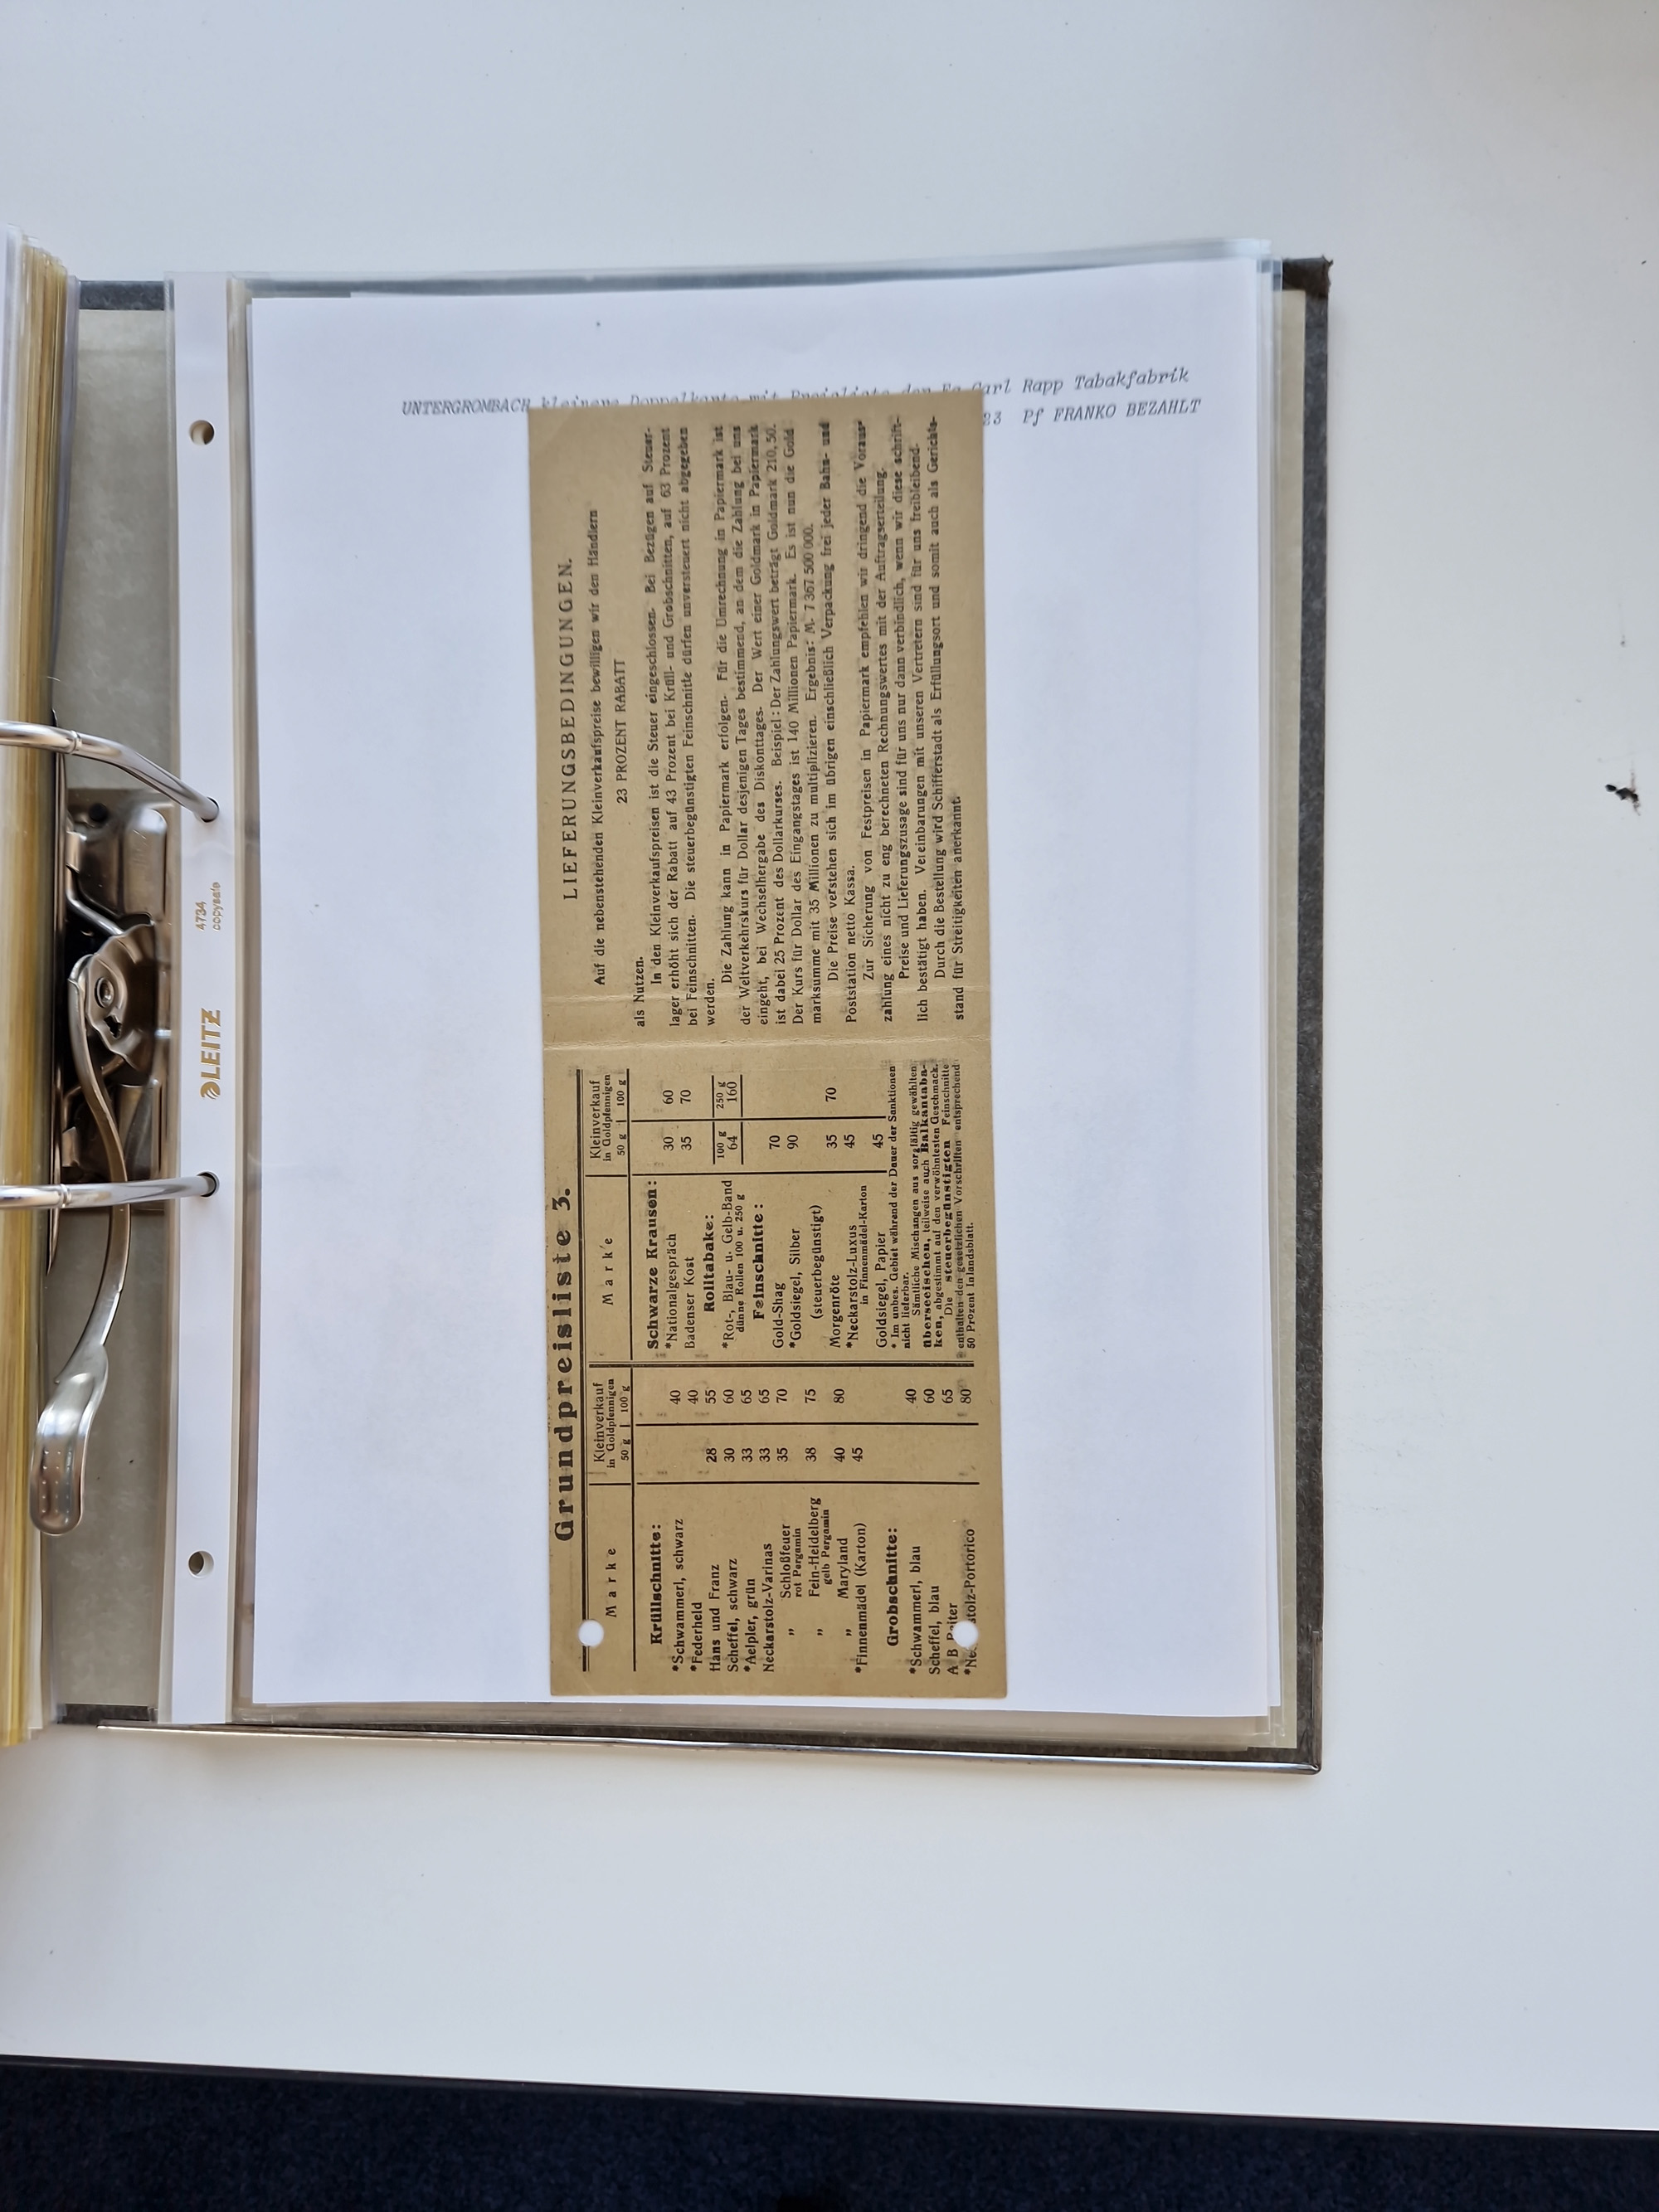 UNTERGROMBACH kleinere Doppelkarte mit Preisliste der Fa Carl Rapp Tabakfabrik
23 Pf FRANKO BEZAHLT
Grundpreisliste 3.
Marke
Kleinverkauf
in Goldpfennigen
50 g | 100 g
Krüllschnitte:
*Schwammerl, schwarz 40
*Federheld 40
Hans und Franz 28 55
Scheffel, schwarz 30 60
*Aelpler, grün 33 65
Neckarstolz-Varinas 33 65
„ Schloßfeuer 35 70
rot Pergamin
„ Fein-Heidelberg 38 75
gelb Pergamin
„ Maryland 40 80
*Finnenmädel (Karton) 45
Grobschnitte:
*Schwammerl, blau 40
Scheffel, blau 60
A B Reiter 65
stolz-Portorico 80
Marke
Kleinverkauf
in Goldpfennigen
50 g | 100 g
Schwarze Krausen:
*Nationalgespräch 30 60
Badenser Kost 35 70
Rolltabake:
100 g 250 g
*Rot-, Blau- u. Gelb-Band 64 160
dünne Rollen 100 u. 250 g
Feinschnitte:
Gold-Shag 70
*Goldsiegel, Silber 90
(steuerbegünstigt)
Morgenröte 35 70
*Neckarstolz-Luxus 45
in Finnenmädel-Karton
Goldsiegel, Papier 45
* Im unbes. Gebiet während der Dauer der Sanktionen
nicht lieferbar.
Sämtliche Mischungen aus sorgfältig gewählten
überseeischen, teilweise auch Balkantaba-
ken, abgestimmt auf den verwöhntesten Geschmack.
Die steuerbegünstigten Feinschnitte
enthalten den gesetzlichen Vorschriften entsprechend
50 Prozent Inlandsblatt.
LIEFERUNGSBEDINGUNGEN.
Auf die nebenstehenden Kleinverkaufspreise bewilligen wir den Händlern
23 PROZENT RABATT
als Nutzen.
In den Kleinverkaufspreisen ist die Steuer eingeschlossen. Bei Bezügen auf Steuer-
lager erhöht sich der Rabatt auf 43 Prozent bei Krüll- und Grobschnitten, auf 63 Prozent
bei Feinschnitten. Die steuerbegünstigten Feinschnitte dürfen unversteuert nicht abgegeben
werden.
Die Zahlung kann in Papiermark erfolgen. Für die Umrechnung in Papiermark ist
der Weltverkehrskurs für Dollar desjenigen Tages bestimmend, an dem die Zahlung bei uns
eingeht, bei Wechselhergabe des Diskonttages. Der Wert einer Goldmark in Papiermark
ist dabei 25 Prozent des Dollarkurses. Beispiel: Der Zahlungswert beträgt Goldmark 210,50.
Der Kurs für Dollar des Eingangstages ist 140 Millionen Papiermark. Es ist nun die Gold
marksumme mit 35 Millionen zu multiplizieren. Ergebnis: M. 7 367 500 000.
Die Preise verstehen sich im übrigen einschließlich Verpackung frei jeder Bahn- und
Poststation netto Kassa.
Zur Sicherung von Festpreisen in Papiermark empfehlen wir dringend die Voraus-
zahlung eines nicht zu eng berechneten Rechnungswertes mit der Auftragserteilung.
Preise und Lieferungszusage sind für uns nur dann verbindlich, wenn wir diese schrift-
lich bestätigt haben. Vereinbarungen mit unseren Vertretern sind für uns freibleibend.
Durch die Bestellung wird Schifferstadt als Erfüllungsort und somit auch als Gerichts-
stand für Streitigkeiten anerkannt.
LEITZ
4734
copysafe